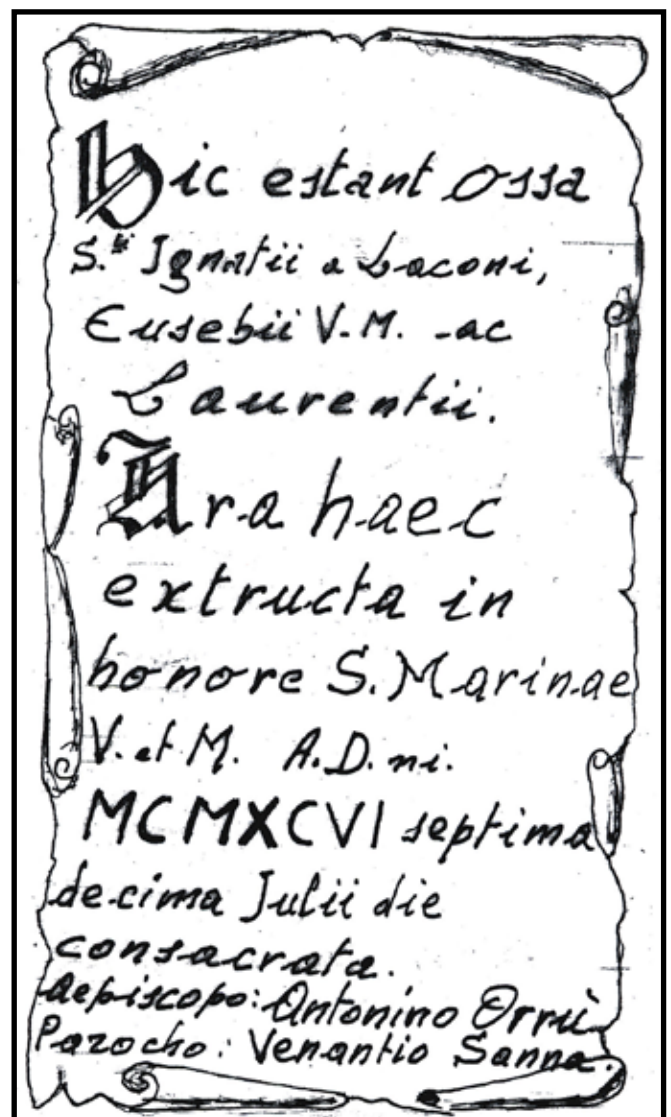 Hic estant ossa
S.ti Ignatii a Laconi,
Eusebii V.M. ac
Laurentii.
Ara haec
extructa in
honore S. Marinae
V. et M. A.D.ni.
MCMXCVI septima
decima Julii die
consacrata.
aepiscopo: Antonino Orrù
Parocho: Venantio Sanna.